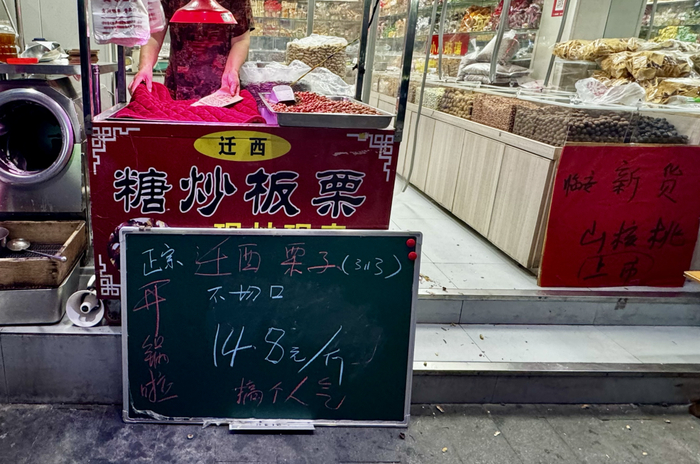 迁西
糖炒板栗
现炒现卖
正宗 迁西 栗子
不切口
开锅啦
14.8元/斤
搞个人气
临安 新货
山核桃